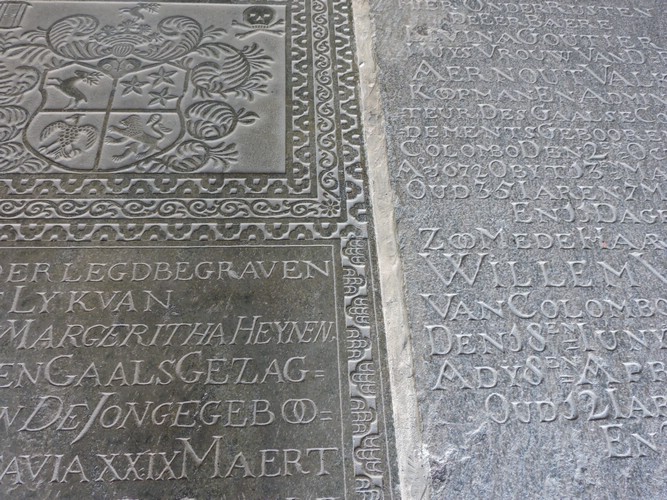 DER LEGD BEGRAVEN
LYK VAN
MARGERITHA HEYNEN
EN GAALS GEZAG=
DE JONGE GEBOO=
AVIA XXIX MAERT
DER ONDER
DE EER BAERE
VROUW VAN D
AERNOUT VAL
KOOPMAN EN ADMI
TEUR DES GAALSE C
DEMENTS GEBOOREN
COLOMBO DEN
OUD 35 IAREN 7 M
EN 13 DAG
ZOO MEDE HAR
WILLEM V
VAN COLOMBO
DEN 18EN IUNY
ADY 8EN APR
OUD 12 IAR
EN